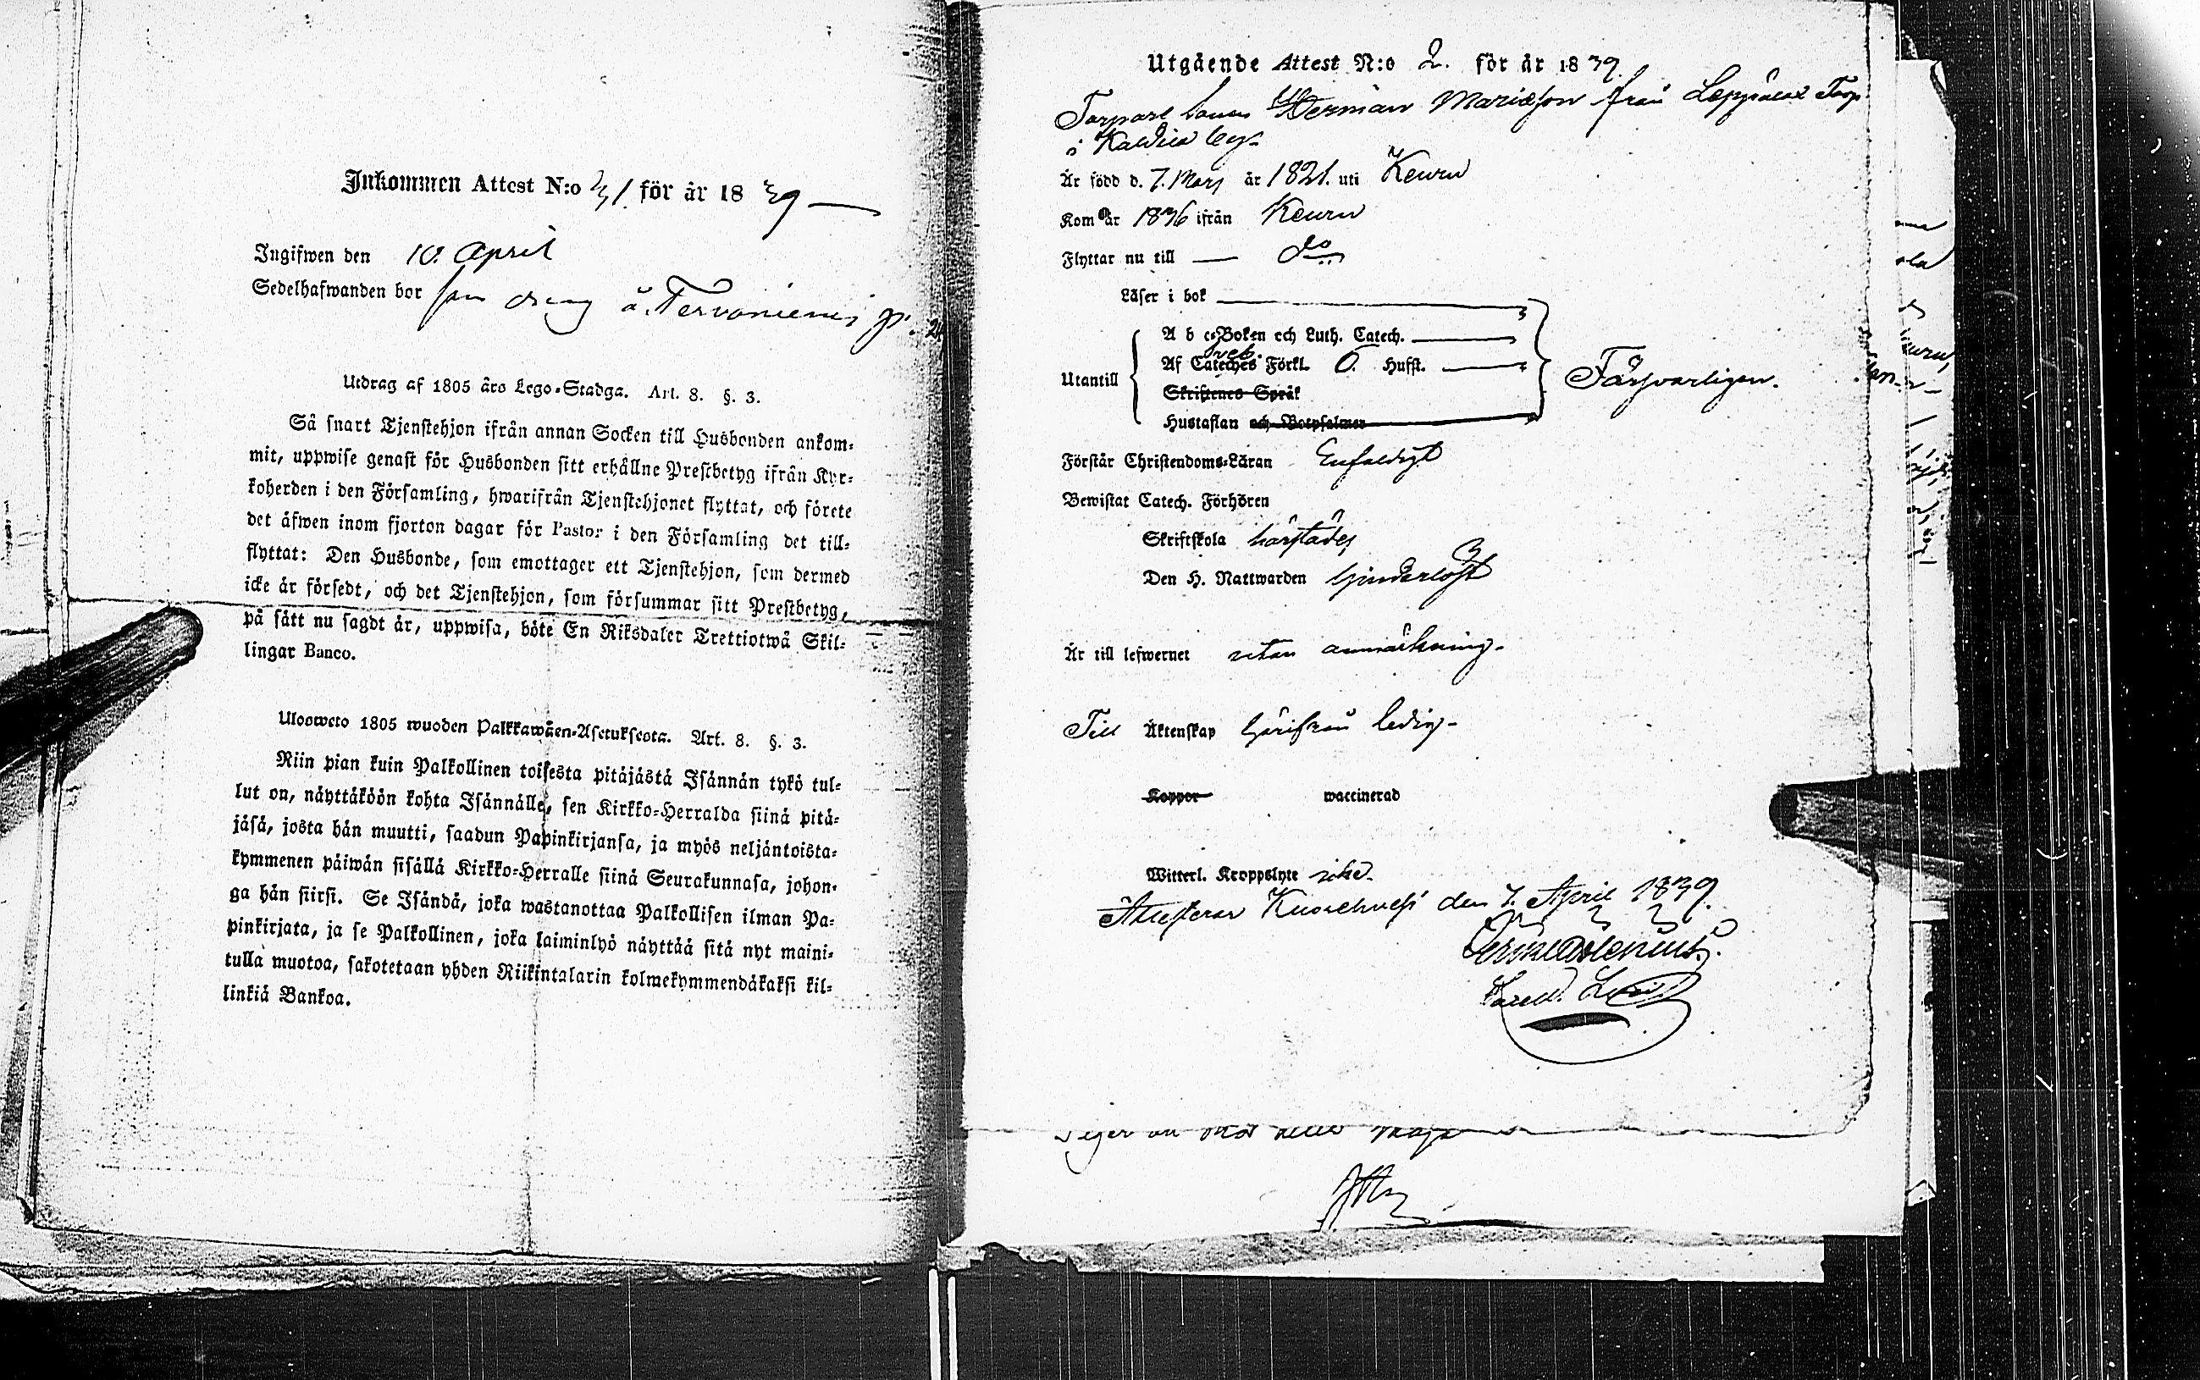 Inkommen Attest N:o 31. för år 1839
Ingifwen den 10. April
Sedelhafwanden bor som dreng å Tervaniemi
Utdrag af 1805 års Lego-Stadga. Art. 8. §. 3.
Så snart Tjenstehjon ifrån annan Socken till Husbonden ankom-
mit, uppwise genast för Husbonden sitt erhållne Prestbetyg ifrån Kyr-
koherden i den Församling, hwarifrån Tjenstehjonet flyttat, och förete
det äfwen inom fjorton dagar för Pastor i den Församling det till-
flyttat: Den Husbonde, som emottager ett Tjenstehjon, som dermed
icke är försedt, och det Tjenstehjon, som försummar sitt Prestbetyg,
på sätt nu sagdt är, uppwisa, böte En Riksdaler Trettiotwå Skil-
lingar Banco.
Ulosweto 1805 wuoden Palkkawäen-Asetuksesta. Art. 8. §. 3.
Niin pian kuin Palkollinen toisesta pitäjästä Isännän tykö tul-
lut on, näyttäköön kohta Isännälle, sen Kirkko-Herralda siinä pitä-
jäsä, josta hän muutti, saadun Papinkirjansa, ja myös neljäntoista-
kymmenen päiwän sisällä Kirkko-Herralle siinä Seurakunnasa, johon-
ga hän siirsi. Se Isändä, joka wastanottaa Palkollisen ilman Pa-
pinkirjata, ja se Palkollinen, joka laiminlyö näyttää sitä nyt maini-
tulla muotoa, sakotetaan yhden Riikintalarin kolmekymmendäkaksi kil-
linkiä Bankoa.
Utgående Attest N:o 2. för år 1839.
Torpare sonen Herman Mariæson från Leppälax Torp
i
Är född d. 7. Mars år 1821. uti Keuru
Kom år 1836 ifrån Keuru
Flyttar nu till — do
Läser i bok
A b c-Boken och Luth. Catech.
Sveb.
Utantill Af Cateches Förkl. O. Husft. Försvarligen.
Skriftenes Språk
Hustaflan och Botpsalmer
Förstår Christendoms-Läran Enfaldigt
Bewistat Catech. Förhören
Skriftskola härstädes
Den H. Nattwarden hinderlöst
Är till lefwernet utan anmärkning.
Till Äktenskap härifrån ledig.
Koppor waccinerad
Witterl. Kroppslyte icke.
Attesterar Kuorehvesi den 7. April 1839.